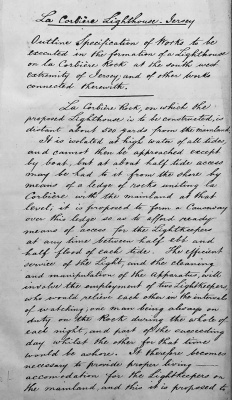 La Corbière Lighthouse. Jersey
Outline Specification of Works to be
executed in the formation of a Lighthouse
on La Corbière Rock at the south west
extremity of Jersey; and of other works
connected therewith.
La Corbière Rock, on which the
proposed Lighthouse is to be constructed, is
distant about 500 yards from the mainland.
It is isolated at high water of all tides,
and cannot then be approached except
by boat, but at about half tide access
may be had to it from the shore by
means of a ledge of rocks uniting La
Corbière with the mainland at that
level; it is proposed to form a Causeway
over this ledge so as to afford ready
means of access for the Lightkeepers
at any time between half ebb and
half flood of each tide. The efficient
service of the Light, and the cleaning
and manipulation of the apparatus, will
involve the employment of two Lightkeepers,
who would relieve each other in the intervals
of watching, one man being always on
duty on the Rock during the whole of
each night, and part of the succeeding
day whilst the other for that time
would be ashore. It therefore becomes
necessary to provide proper living
accomodation for the Lightkeepers on
the mainland, and this it is proposed to